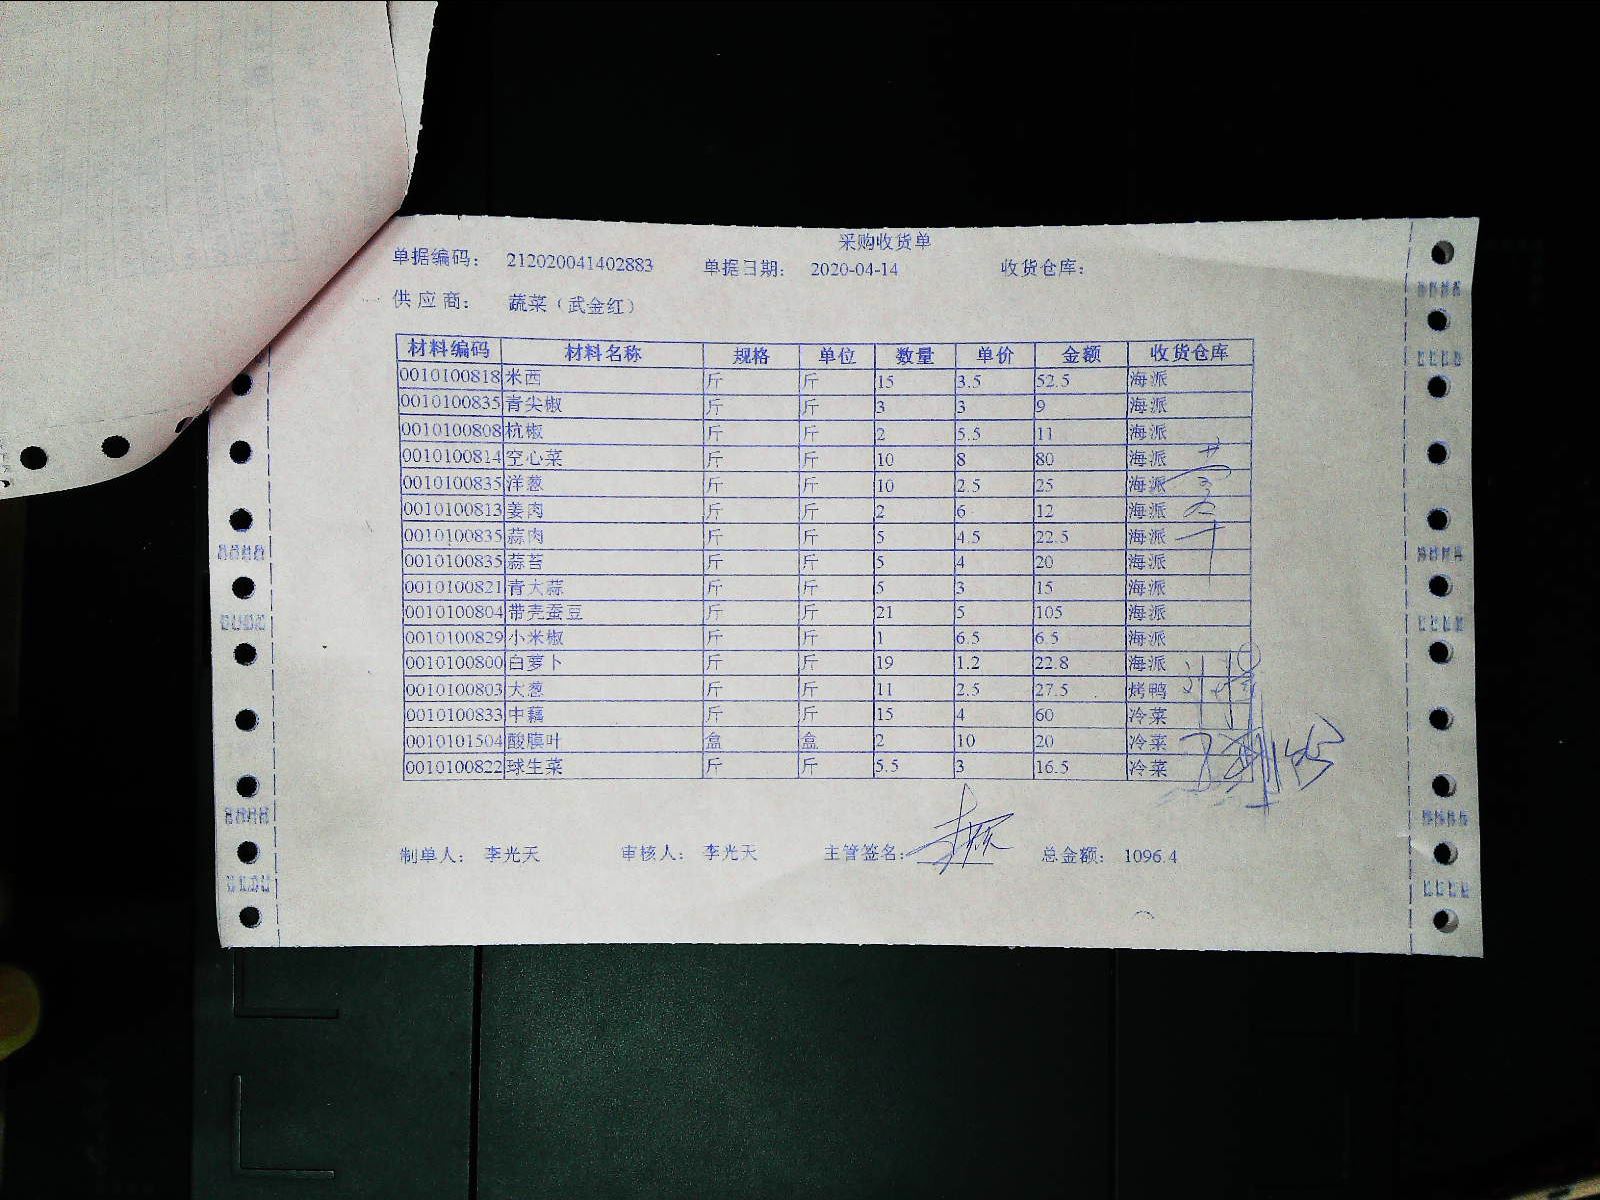 采购收货单
单据编码： 212020041402883 单据日期： 2020-04-14 收货仓库：
供应商： 蔬菜（武金红）
材料编码 材料名称 规格 单位 数量 单价 金额 收货仓库
0010100818 米西 斤 斤 15 3.5 52.5 海派
0010100835 青尖椒 斤 斤 3 3 9 海派
0010100808 杭椒 斤 斤 2 5.5 11 海派
0010100814 空心菜 斤 斤 10 8 80 海派
0010100835 洋葱 斤 斤 10 2.5 25 海派
0010100813 姜肉 斤 斤 2 6 12 海派
0010100835 蒜肉 斤 斤 5 4.5 22.5 海派
0010100835 蒜苔 斤 斤 5 4 20 海派
0010100821 青大蒜 斤 斤 5 3 15 海派
0010100804 带壳蚕豆 斤 斤 21 5 105 海派
0010100829 小米椒 斤 斤 1 6.5 6.5 海派
0010100800 白萝卜 斤 斤 19 1.2 22.8 海派
0010100803 大葱 斤 斤 11 2.5 27.5 烤鸭
0010100833 中藕 斤 斤 15 4 60 冷菜
0010101504 酸膜叶 盒 盒 2 10 20 冷菜
0010100822 球生菜 斤 斤 5.5 3 16.5 冷菜
制单人： 李光天 审核人： 李光天 主管签名： 总金额： 1096.4